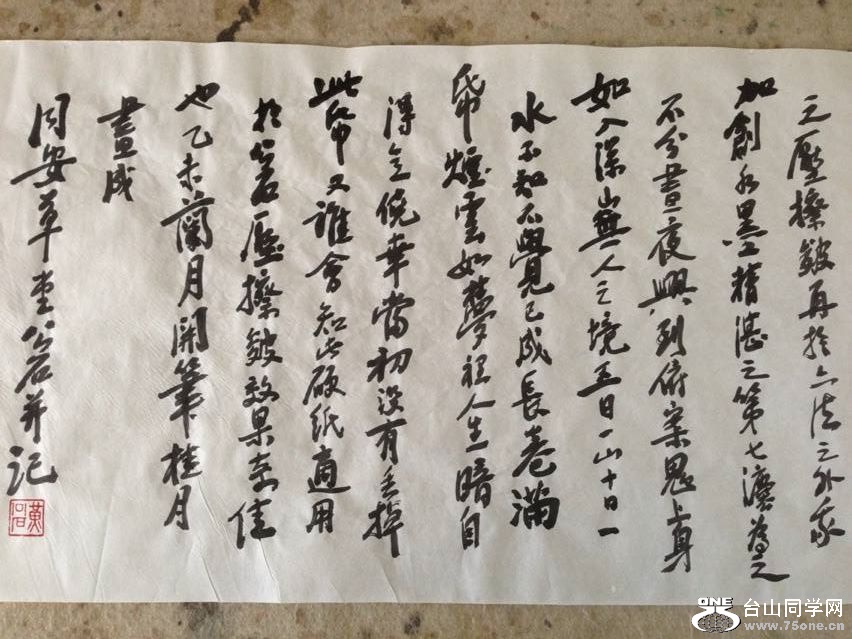 之壓擦皴再於六法之外我
加創水墨精湛之第七灋為之
不分晝夜興到俯案鬼上身
如入深山無人之境五日一山十日一
水不知不覺已成長卷滿
帋煙雲如夢裡人生暗自
得意僥幸當初沒有丢掉
此帋又誰會知此廢紙適用
於公若壓擦皴效果奇佳
也乙未蘭月開筆桂月
畫成
同安草堂公若并記
黃
ONE
台山同学网
www.75one.cn